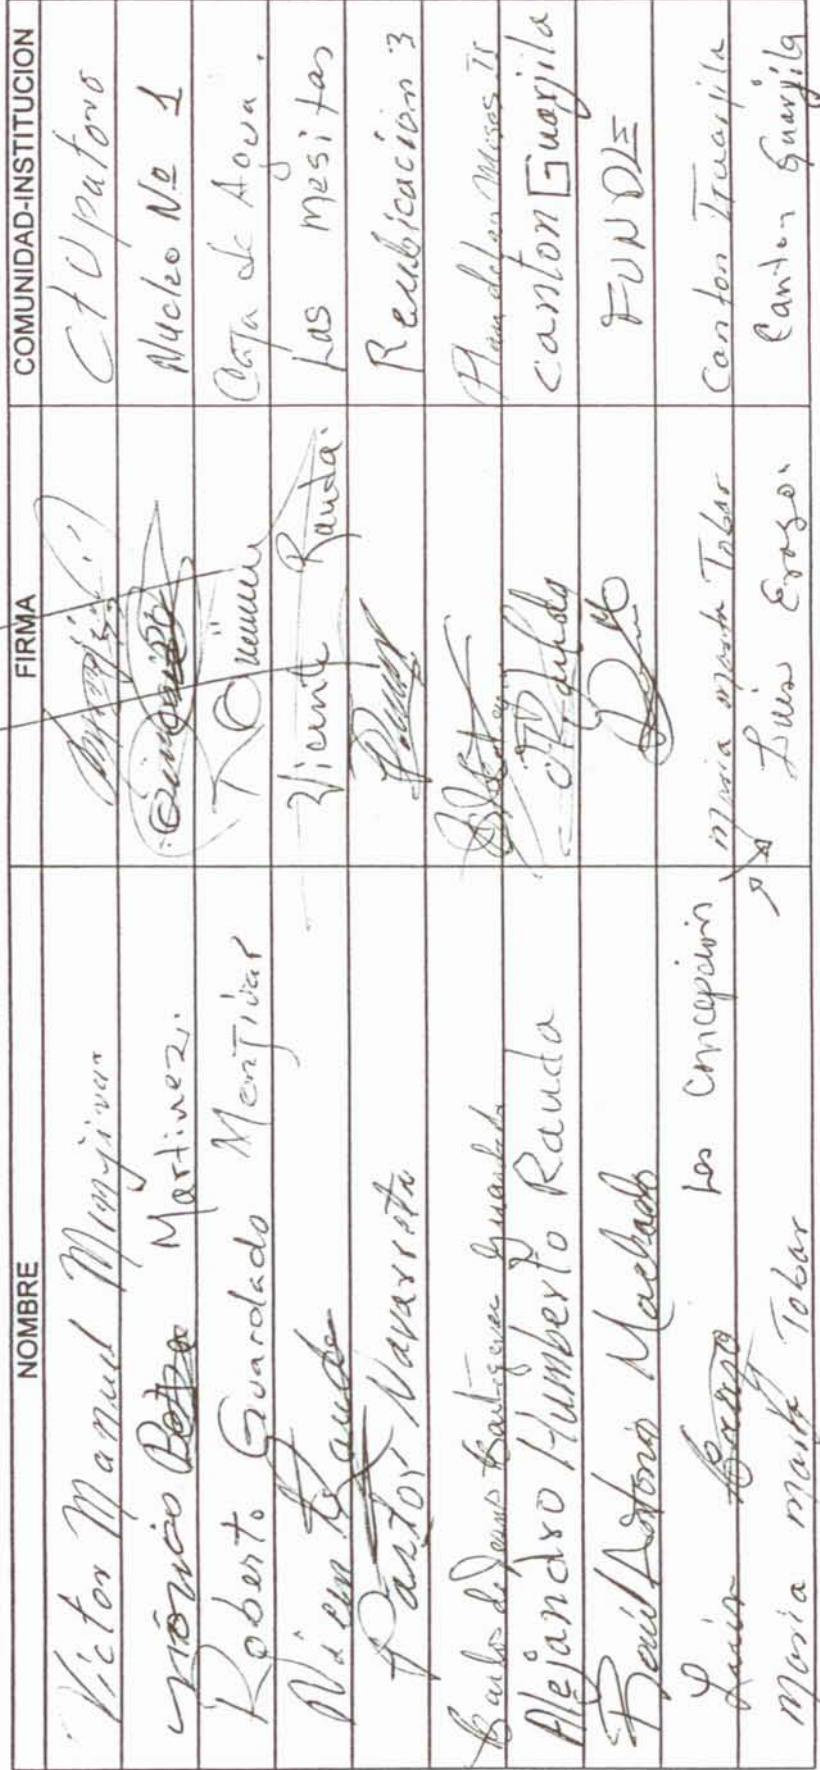 NOMBRE FIRMA COMUNIDAD-INSTITUCION
Victor Manuel Menjivar Ctupatoro
Martinez. Nucleo Nº 1
Roberto Guardado Menjivar Caja de Agua.
Vicente Rauda Vicente Rauda. Las Mesitas
Pastor Navarrete Reubicacion 3
Carlos de Jesus Guardado Plan de las Mesas
Alejandro Humberto Rauda Canton Guarjila
Raúl Antonio Machado FUNDE
Luis Erazo Los Concepcion maria marta Tobar Canton Guarjila
Maria marta Tobar Luis Erazo. Canton Guarjila